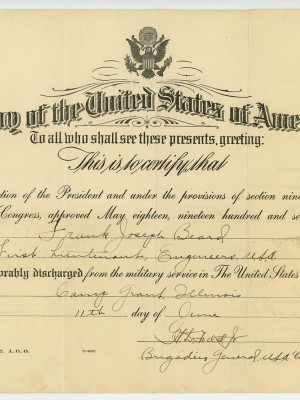 ny of the United States of Ame
To all who shall see these presents, greeting:
This is to certify that
ction of the President and under the provisions of section nine
Congress, approved May eighteen, nineteen hundred and seve
Frank Joseph Beard
First Lieutenant, Engineers, U.S.A.
orably discharged from the military service in The United States
Camp Grant Illinois
11th day of June
Brigadier General, U.S.A.
A. G. O.